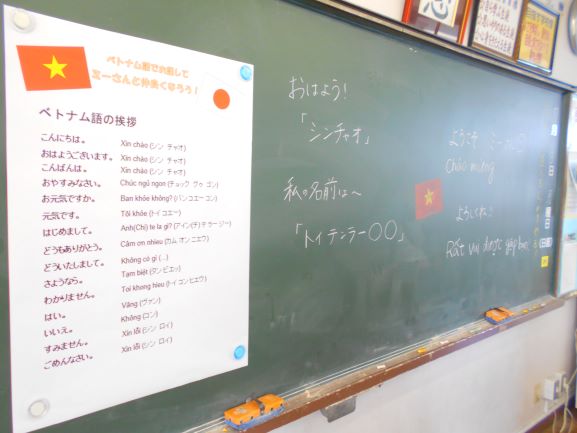 ベトナム語で会話して
ミーさんと仲良くなろう！
ベトナム語の挨拶
こんにちは。 Xin chào (シン チャオ)
おはようございます。 Xin chào (シン チャオ)
こんばんは。 Xin chào (シン チャオ)
おやすみなさい。 Chúc ngủ ngon (チョック グゥ ゴン)
お元気ですか。 Ban khỏe không? (バンコエーコン)
元気です。 Tôi khỏe (トイコエー)
はじめまして。 Anh(Chi) te la gì? (アイン(チ)テ ラージー)
どうもありがとう。 Cảm ơn nhieu (カム オンニエウ)
どういたしまして。 Không có gì (...)
さようなら。 Tạm biệt (タンビエッ)
わかりません。 Toi khong hieu (トイコンヒエウ)
はい。 Vâng (ヴァン)
いいえ。 Không (コン)
すみません。 Xin lỗi (シン ロイ)
ごめんなさい。 Xin lỗi (シン ロイ)
おはよう！
「シンチャオ」
私の名前は〜
「トイテンラー〇〇」
ようこそ ミー
Chào mừng
よろしくね
Rất vui được gặp bạn
日
月
曜日
日直